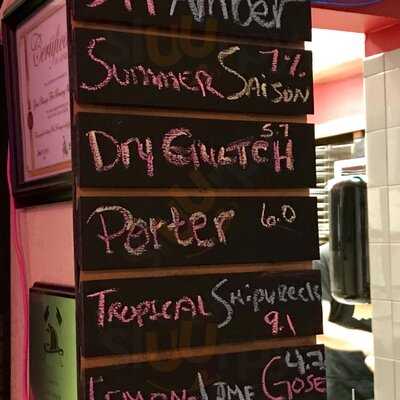 Amber
Summer Saison 7%
Dry Gultch 5.7
Porter 6.0
Tropical Shipwreck
9.1
Lemon-Lime Gose 4.7